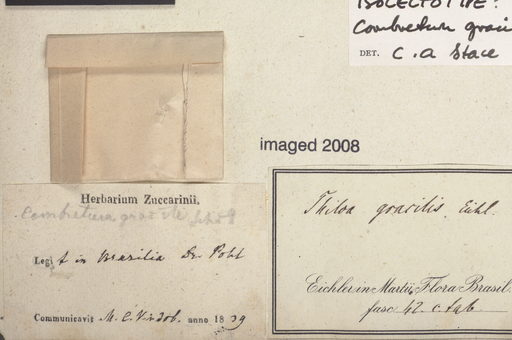 ISOLECTOTYPE?
Combretum graci
DET. C. A Stace
imaged 2008
Herbarium Zuccarinii.
Combretum gracile Schott
Legit in Brasilia Dr. Pohl
Communicavit M. C. Vindob. anno 1839
Thiloa gracilis, Eichl.
Eichler in Martii Flora Brasil.
fasc. 42. c. tab